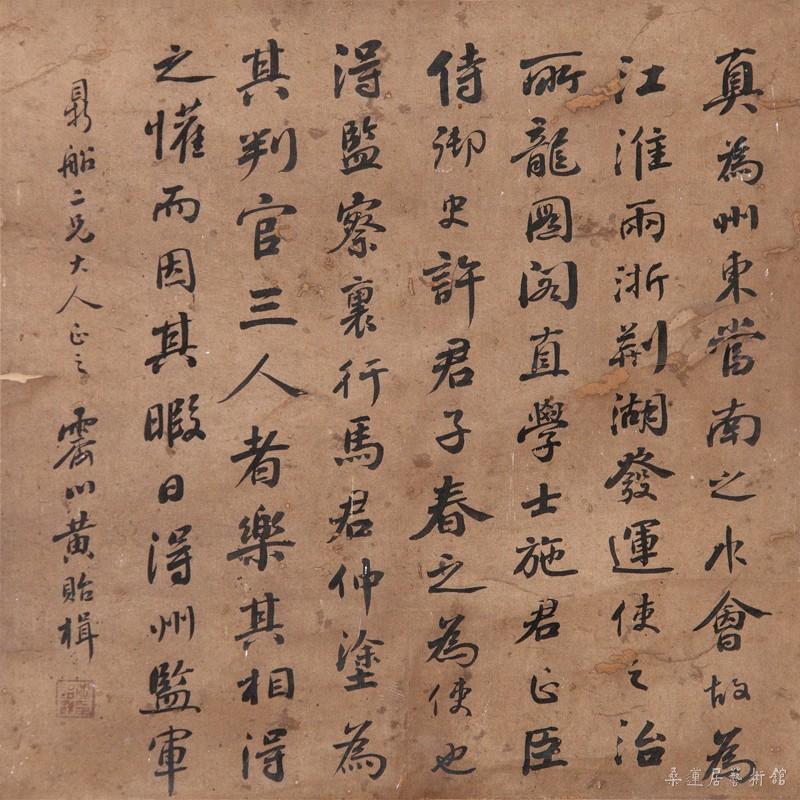 真為州東當南之水會故為
江淮兩浙荆湖發運使之治
所龍圖閣直學士施君正臣
侍御史許君子春之為使也
得監察裏行馬君仲塗為
其判官三人者樂其相得
之懽而因其暇日得州監軍
船二兄大人正之
霞川黃貽楫
桑蓮居藝術館